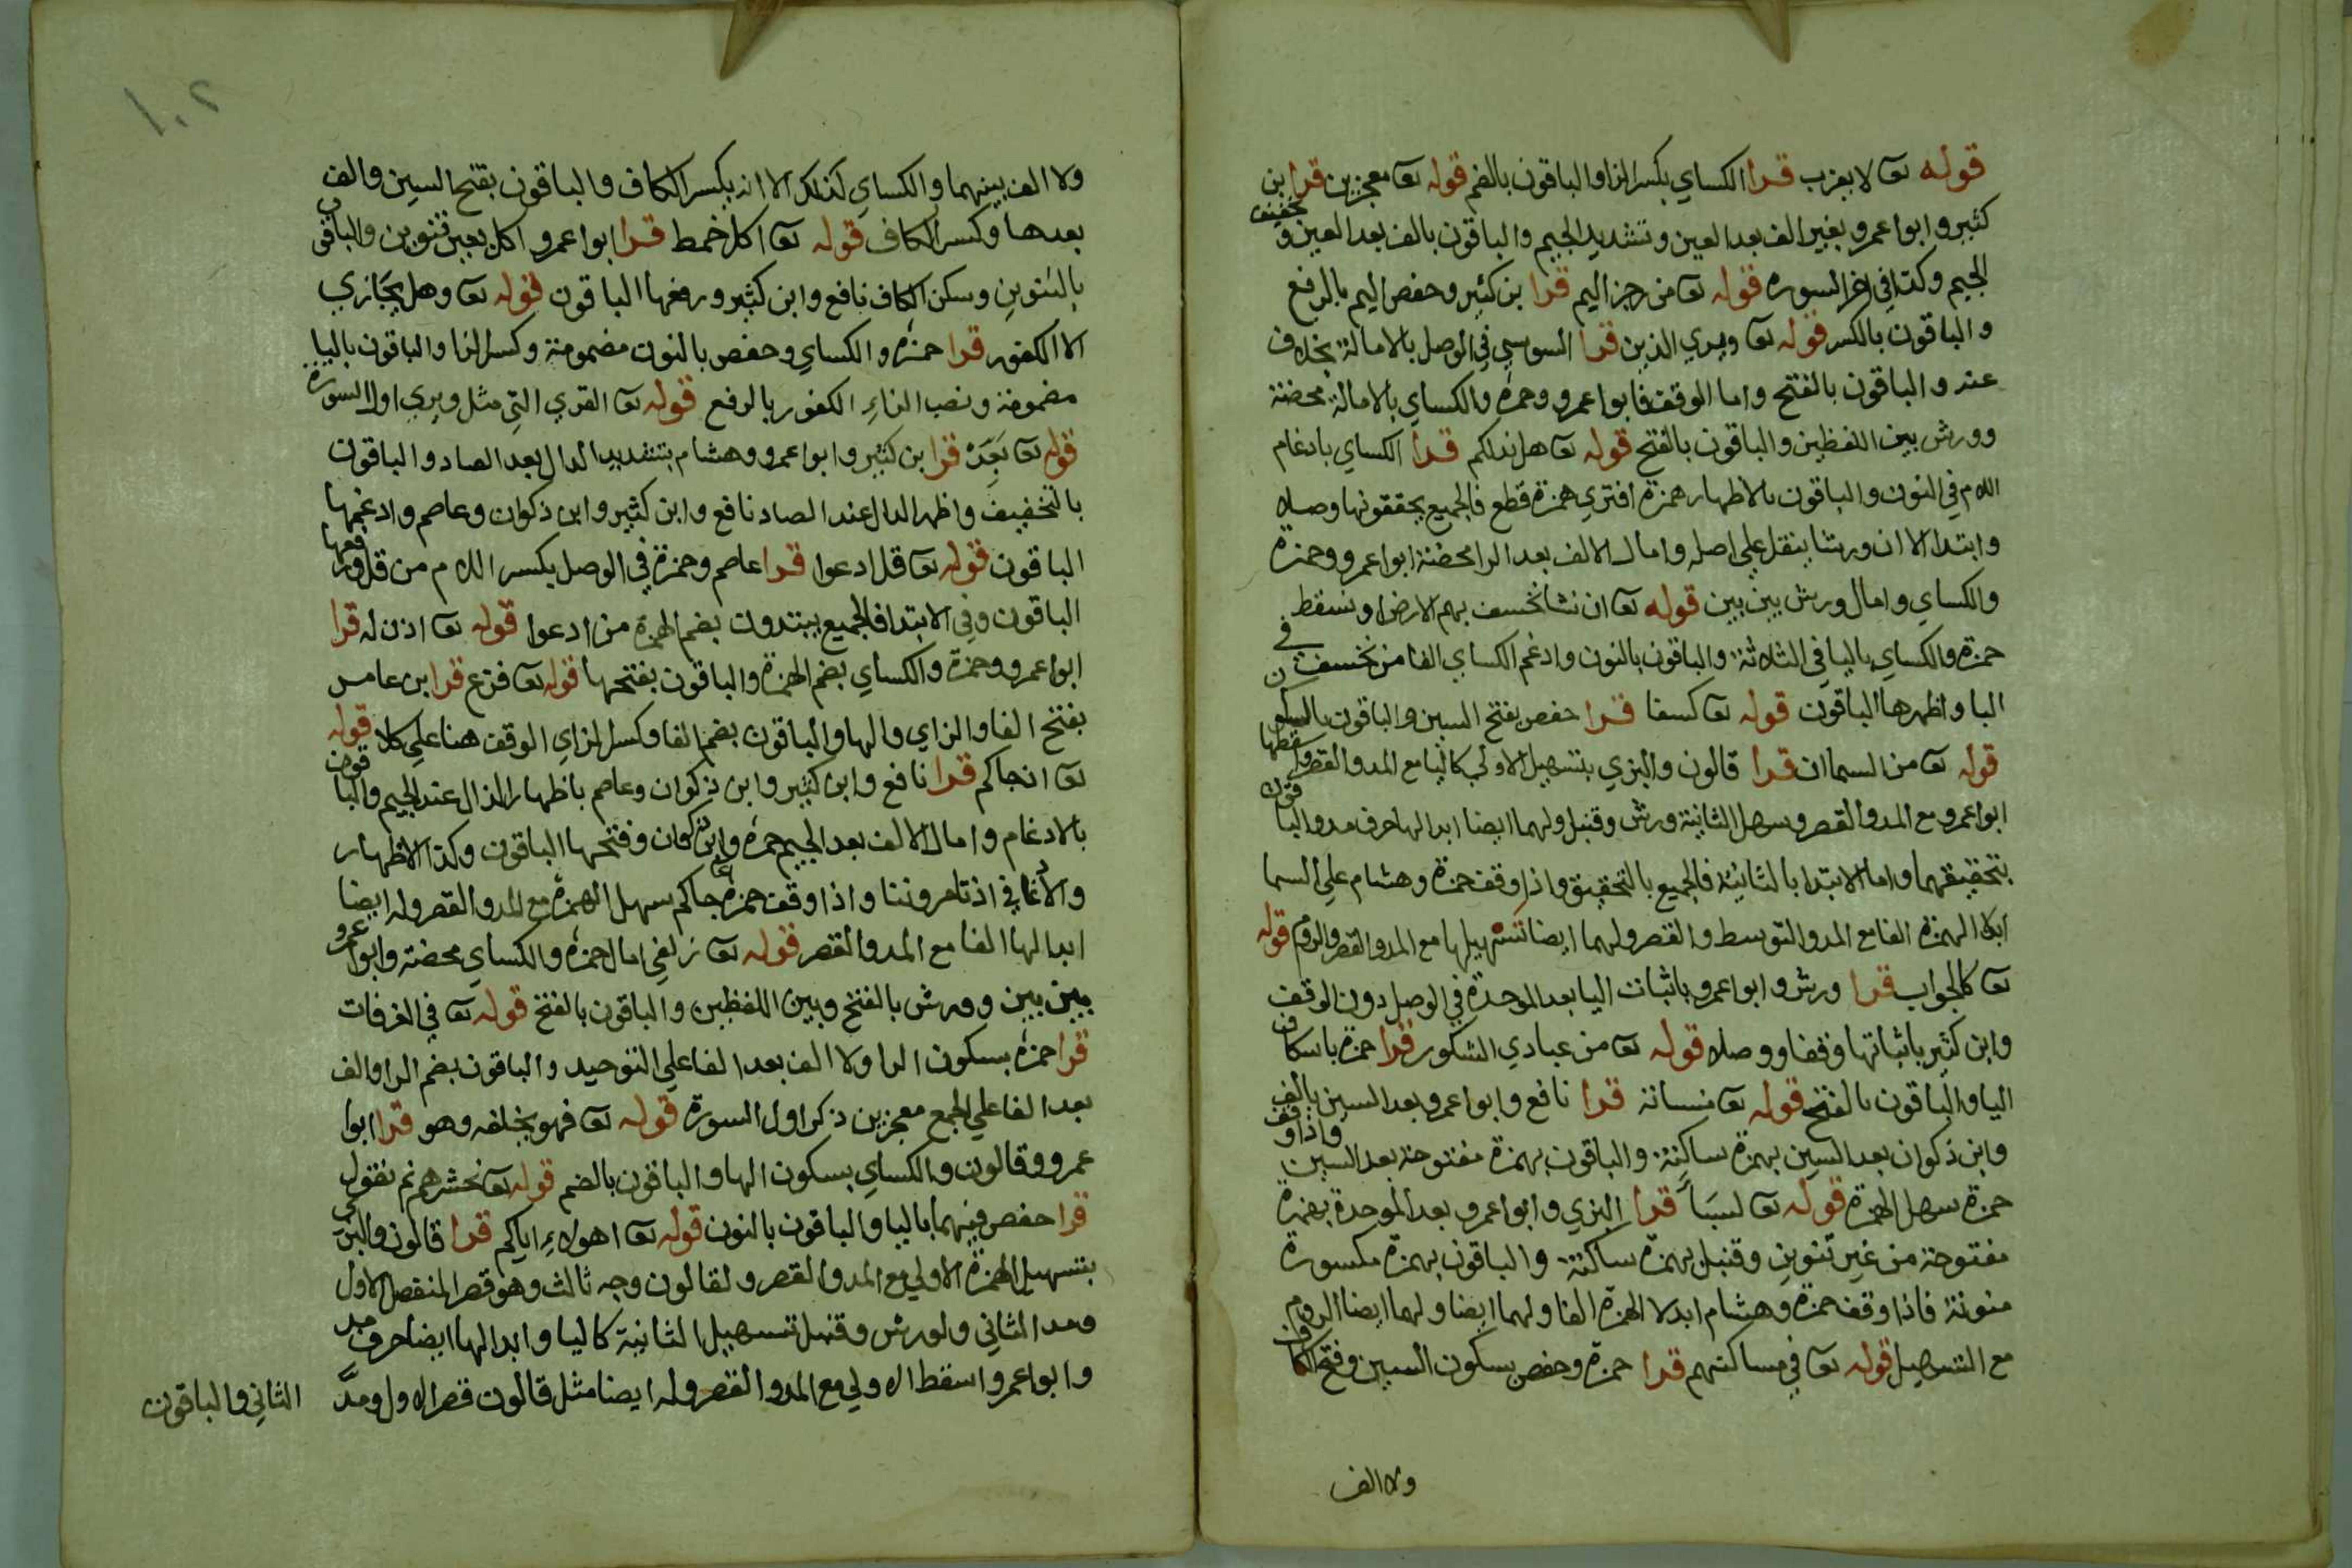 قوله تعا لا يعزب قرا الكساي بكسر الزا والباقون بالضم قوله تعا معجزين قرا بن
كثير وابوا عمرو بغير الف بعد العين وتشديد الجيم والباقون بالف بعد العين و تخفيف
الجيم وكذا في اخر السوره قوله تعا من رجز اليم قرا بن كثير وحفص اليم بالرفع
والباقون بالكسر قوله تعا ويري الذين قرا السوسي في الوصل بالامالة بخلاف
عنه والباقون بالفتح واما الوقف فابوا عمرو وحمزه والكساي بالامالة محضة
وورش بين اللفظين والباقون بالفتح قوله تعا هل ندلكم قرا الكساي بادغام
اللام في النون والباقون بالاظهار همزة افتري همزة قطع فالجميع يحققونها وصلا
وابتدا الا ان ورشا ينقل علي اصله وامال الالف بعد الرا محضة ابوا عمرو وحمزة
والكساي وامال ورش بين بين قوله تعا ان نشا نخسف بهم الارض او نسقط
حمزه والكساي باليا في الثلاثة والباقون بالنون وادغم الكساي الفا من نخسف في
البا واظهرها الباقون قوله تعا كسفا قرا حفص بفتح السين والباقون بالسكون
قوله تعا من السماان قرا قالون والبزي بتسهيل الاولي كاليا مع المد والقصر واسقطها
ابوا عمرو مع المد والقصر وسهل الثانية ورش وقنبل ولهما ايضا ابدالها حرف مد والباقون
بتحقيقهما واما الابتدا بالثانية فالجميع بالتحقيق واذا وقف حمزة وهشام علي السما
ابدلا الهمزة الفا مع المد والتوسط والقصر ولهما ايضا تسهيلها مع المد والقصر والروم قوله
تعا كالجواب قرا ورش وابوا عمرو باثبات اليا بعد الموحدة في الوصل دون الوقف
وابن كثير باثباتها وقفا ووصلا قوله تعا من عبادي الشكور قرا حمزة باسكان
اليا والباقون بالفتح قوله تعا منساته قرا نافع وابوا عمرو بعد السين بالف
وابن ذكوان بعد السين بهمزة ساكنة والباقون بهمزة مفتوحة بعد السين واذا وقف
حمزة سهل الهمزة قوله تعا لسبأ قرا البزي وابوا عمرو بعد الموحدة بهمزة
مفتوحة من غير تنوين وقنبل بهمزة ساكنة والباقون بهمزة مكسورة
منونة فاذا وقف حمزة وهشام ابدلا الهمزة الفا ولهما ايضا ولهما ايضا الروم
مع التسهيل قوله تعا في مساكنهم قرا حمزة وحفص بسكون السين وفتح الكاف
ولا الف
١٠٢
ولا الف بينهما والكساي كذلك الا انه بكسر الكاف والباقون بفتح السين والف
بعدها وكسر الكاف قوله تعا اكل خمط قرا ابوا عمرو اكل بغير تنوين والباقون
بالتنوين وسكن الكاف نافع وابن كثير ورفعها الباقون قوله تعا وهل يجازي
الا الكفور قرا حمزه والكساي وحفص بالنون مضمومة وكسر الزا والباقون باليا
مضمومة ونصب الزاءِ الكفور بالرفع قوله تعا القري التي مثل ويري اولا السورة
قوله تعا بَعِّدْ قرا بن كثير وابوا عمرو وهشام بتشديد الدال بعد الصاد والباقون
بالتخفيف واظهر الدال عند الصاد نافع وابن كثير وابن ذكوان وعاصم وادغمها
الباقون قوله تعا قل ادعوا قرا عاصم وحمزة في الوصل بكسر اللام من قل ورفعها
الباقون وفي الابتدا فالجميع يبتدون بضم الهمزة من ادعوا قوله تعا اذن له قرا
ابوا عمرو وحمزة والكساي بضم الهمزة والباقون بفتحها قوله تعا فزع قرا ابن عامر
بفتح الفا والزاي والها والباقون بضم الفا وكسر الزاي الوقف هنا علي كلا قوله
تعا انجاكم قرا نافع وابن كثير وابن ذكوان وعاصم باظهار الذال عند الجيم والباقون
بالادغام وامال الالف بعد الجيم حمزه وابن ذكوان وفتحها الباقون وكذا الاظهار
والادغام في اذ تامروننا واذا وقف حمزه علي جاكم سهل الهمزة مع المد والقصر وله ايضا
ابدالها الفا مع المد والقصر قوله تعا زلفي امال حمزه والكساي محضة وابوا عمرو
بين بين وورش بالفتح وبين اللفظين والباقون بالفتح قوله تعا في الغرفات
قرا حمزه بسكون الرا ولا الف بعد الفا علي التوحيد والباقون بضم الرا والف
بعد الفا علي الجمع معجزين ذكر اول السورة قوله تعا فهو يخلفه وهو قرا ابوا
عمرو وقالون والكساي بسكون الها والباقون بالضم قوله تعا نحشرهم ثم نقول
قرا حفص فيهما باليا والباقون بالنون قوله تعا اهولاءِ اياكم قرا قالون والبزي
بتسهيل الهمزة الاولي مع المد والقصر ولقالون وجه ثالث وهو قصر المنفصل الاول
ومد الثاني ولورش وقنبل تسهيل الثانية كاليا وابدالها ايضا حرف مد
وابوا عمرو اسقط الاولي مع المد والقصر وله ايضا مثل قالون قصر الاول ومدَّ
الثاني والباقون